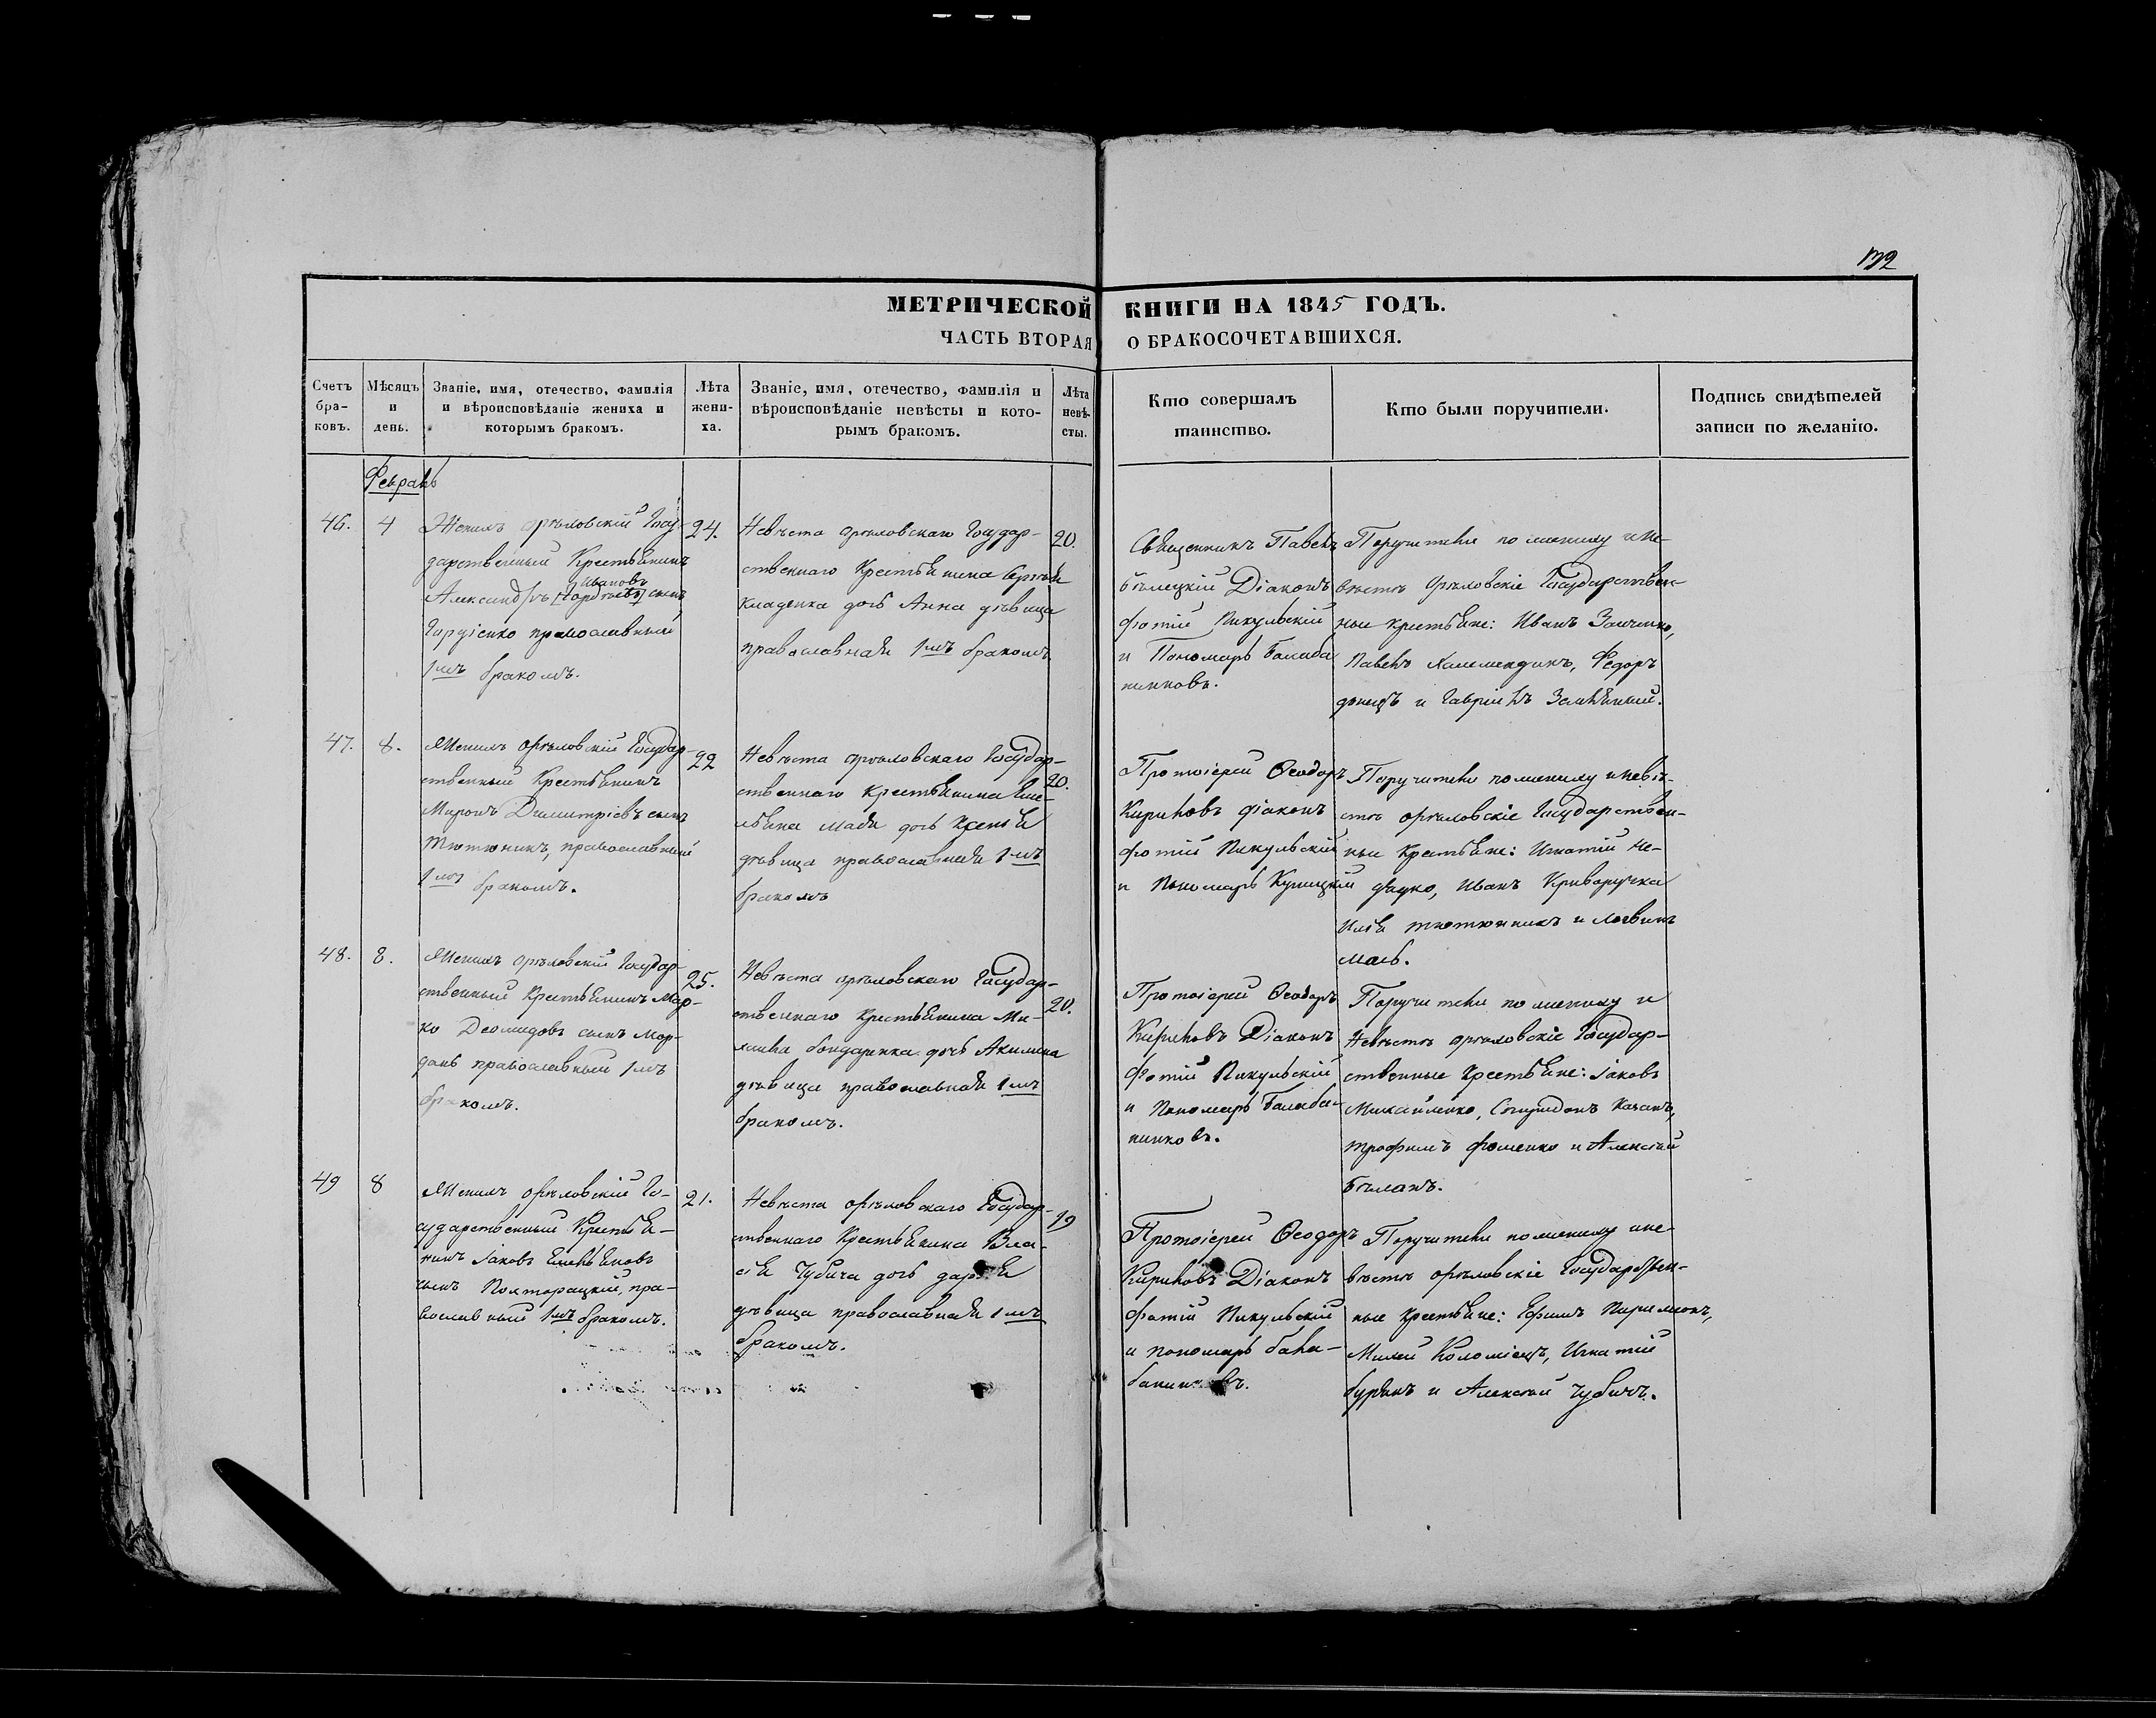 132
МЕТРИЧЕСКОЙ КНИГИ НА 1845 ГОДЪ.
ЧАСТЬ ВТОРАЯ О БРАКОСОЧЕТАВШИХСЯ.
Счетъ
бра-
ковъ.
Мѣсяцъ
и
день.
Званіе, имя, отечество, фамилія
и вѣроисповѣданіе жениха и
которымъ бракомъ.
Лѣта
жени-
ха.
Званіе, имя, отечество, фамилія и
вѣроисповѣданіе невѣсты и кото-
рымъ бракомъ.
Лѣта
невѣ-
сты.
Кто совершалъ
таинство.
Кто были поручители.
Подпись свидѣтелей
записи по желанію.
Февраль
46.
4
Женихъ орѣловскій Госу-
дарственный Крестьянинъ
Ивановъ
Александръ [Гордѣевъ] сынъ
Гордіенко православный
1мъ бракомъ.
24.
Невѣста орѣловскаго Государ-
ственнаго Крестьянина Сергѣя
Кладенка дочь Анна дѣвица
православная 1мъ бракомъ.
20.
Священникъ Павелъ
Діаконъ
Фотій Пикульскій
и Пономарь Балаба
никовъ.
Поручители по жениху и не-
вѣстѣ Орѣловскіе Государствен-
ные крестьяне: Иванъ Заиченко,
Павелъ Федоръ
донецъ и Гавріилъ
47.
8.
Женихъ орѣловскій Государ-
ственный Крестьянинъ
Миронъ Димитріевъ сынъ
Тютюникъ, православный
1мъ бракомъ.
22
Невѣста орѣловскаго Государ-
ственнаго Крестьянина Еме-
льяна Мася дочь Ксенія
дѣвица православная 1мъ
бракомъ
20.
Протоіерей Ѳеодоръ
Кириловъ діаконъ
Фотій Пикульскій
и Пономарь Куницкій
Поручители по жениху и невѣ-
стѣ орѣловскіе Государствен-
ные Крестьяне: Игнатій Не-
Иванъ Криворучка
Илья тютюнникъ и Логвинъ
Мась.
48.
8.
Женихъ орѣловскій Государ-
ственный Крестьянинъ Мар-
ко Деомидовъ сынъ Мор-
дань православный 1мъ
бракомъ.
25.
Невѣста орѣловскаго Государ-
ственнаго Крестьянина Ми-
хаила бондаренка дочь Акилина
дѣвица православная 1мъ
бракомъ.
20.
Протоіерей Ѳеодоръ
Кириловъ Діаконъ
Фотій Пикульскій
и Пономарь Балаба-
никовъ.
Поручители по жениху и
Невѣстѣ орѣловскіе Государ-
ственные Крестьяне: Іаковъ
Михайленко, Спиридонъ Качанъ,
трофимъ Фоменко и Алексѣй
Бѣланъ.
49
8
Женихъ орѣловскій Го-
сударственный Крестья-
нинъ Іаковъ Емельяновъ
сынъ Полторацкій, пра-
вославный 1мъ бракомъ.
21.
Невѣста орѣловскаго Государ-
ственнаго Крестьянина Вла-
сія Чубича дочь дарія
дѣвица православная 1мъ
бракомъ.
19
Протоіерей Ѳеодоръ
Кириловъ Діаконъ
Фотій Пикульскій
и пономарь бала-
баниковъ.
Поручители по жениху и не-
вѣстѣ орѣловскіе Государствен-
ные крестьяне: Ефимъ
Михей Коломіецъ, Игнатій
бурякъ и Алексѣй Чубичъ.